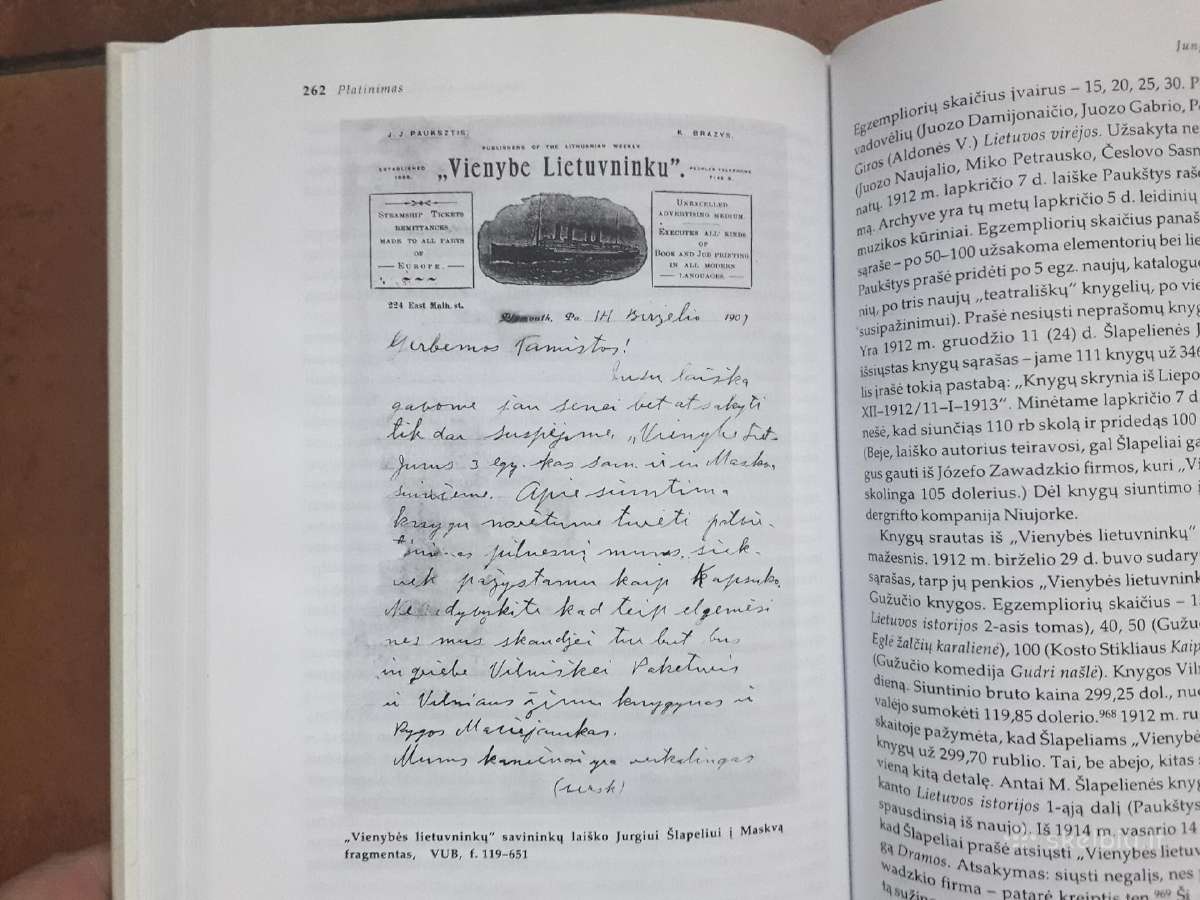 262 Platinimas
J. J. PAUKSZTIS,
K. BRAZYS.
PUBLISHERS OF THE LITHUANIAN WEEKLY
ESTABLISHED
„Vienybe Lietuvninku".
PEOPLES TELEPHONE
STEAMSHIP TICKETS
REMITTANCES
MADE TO ALL PARTS
OF
— EUROPE. —
UNEXCELLED
ADVERTISING MEDIUM.
EXECUTES ALL KINDS
OF
BOOK AND JOB PRINTING
IN ALL MODERN
— LANGUAGES. —
224 East Main. st.
Plymouth, Pa. 14 Birželio 1907
Gerbemos Tamistos!
Jusu laišką
gavome jau senei bet atsakyti
tik dar suspėjome. „Vienybe Liet.
Jums 3 egz. kas sam. ir in Maskvą
siunčeme. Apie siuntima
knygu norėtume turėti
pilnesnį mums, siek-
tiek pažystamu kaip Kapsuko.
kad teip elgemėsi
nes mus skaudžei
Vilniškei
ir Vilniaus knygynas ir
Rygos
Mums yra reikalingas
(versk)
„Vienybės lietuvninkų" savininkų laiško Jurgiui Šlapeliui į Maskvą
fragmentas, VUB, f. 119–651
Jung
Egzempliorių skaičius įvairus – 15, 20, 25, 30. P
vadovėlių (Juozo Damijonaičio, Juozo Gabrio, Pa
Giros (Aldonės V.) Lietuvos virėjos. Užsakyta ne
(Juozo Naujalio, Miko Petrausko, Česlovo Sasn
natų. 1912 m. lapkričio 7 d. laiške Paukštys raše
mą. Archyve yra tų metų lapkričio 5 d. leidinių
muzikos kūriniai. Egzempliorių skaičius panaš
sąraše – po 50–100 užsakoma elementorių bei lie
Paukštys prašė pridėti po 5 egz. naujų, kataloguo
nių, po tris naujų „teatrališkų" knygelių, po vie
susipažinimui). Prašė nesiųsti neprašomų knyg
Yra 1912 m. gruodžio 11 (24) d. Šlapelienės J
išsiųstas knygų sąrašas – jame 111 knygų už 346
lis įrašė tokią pastabą: „Knygų skrynia iš Liepo
XII–1912/11–I–1913". Minėtame lapkričio 7 d
nešė, kad siunčiąs 110 rb skolą ir pridedąs 100
(Beje, laiško autorius teiravosi, gal Šlapeliai ga
gus gauti iš Józefo Zawadzkio firmos, kuri „Vi
skolinga 105 dolerius.) Dėl knygų siuntimo i
dergrifto kompanija Niujorke.
Knygų srautas iš „Vienybės lietuvninkų"
mažesnis. 1912 m. birželio 29 d. buvo sudary
sąrašas, tarp jų penkios „Vienybės lietuvnink
Gužučio knygos. Egzempliorių skaičius – 1
Lietuvos istorijos 2-asis tomas), 40, 50 (Gužuč
Eglė žalčių karalienė), 100 (Kosto Stikliaus Kaip
(Gužučio komedija Gudri našlė). Knygos Viln
dieną. Siuntinio bruto kaina 299,25 dol., nuo
valėjo sumokėti 119,85 dolerio.968 1912 m. ru
skaitoje pažymėta, kad Šlapeliams „Vienybė
knygų už 299,70 rublio. Tai, be abejo, kitas s
vieną kitą detalę. Antai M. Šlapelienės knyg
kanto Lietuvos istorijos 1-ąją dalį (Paukštys
spausdinsią iš naujo). Iš 1914 m. vasario 14
kad Šlapeliai prašė atsiųsti „Vienybės lietuv
gą Dramos. Atsakymas: siųsti negalįs, nes p
wadzkio firma – patarė kreiptis ten.969 Ši
tą sužin
skelbiu.lt